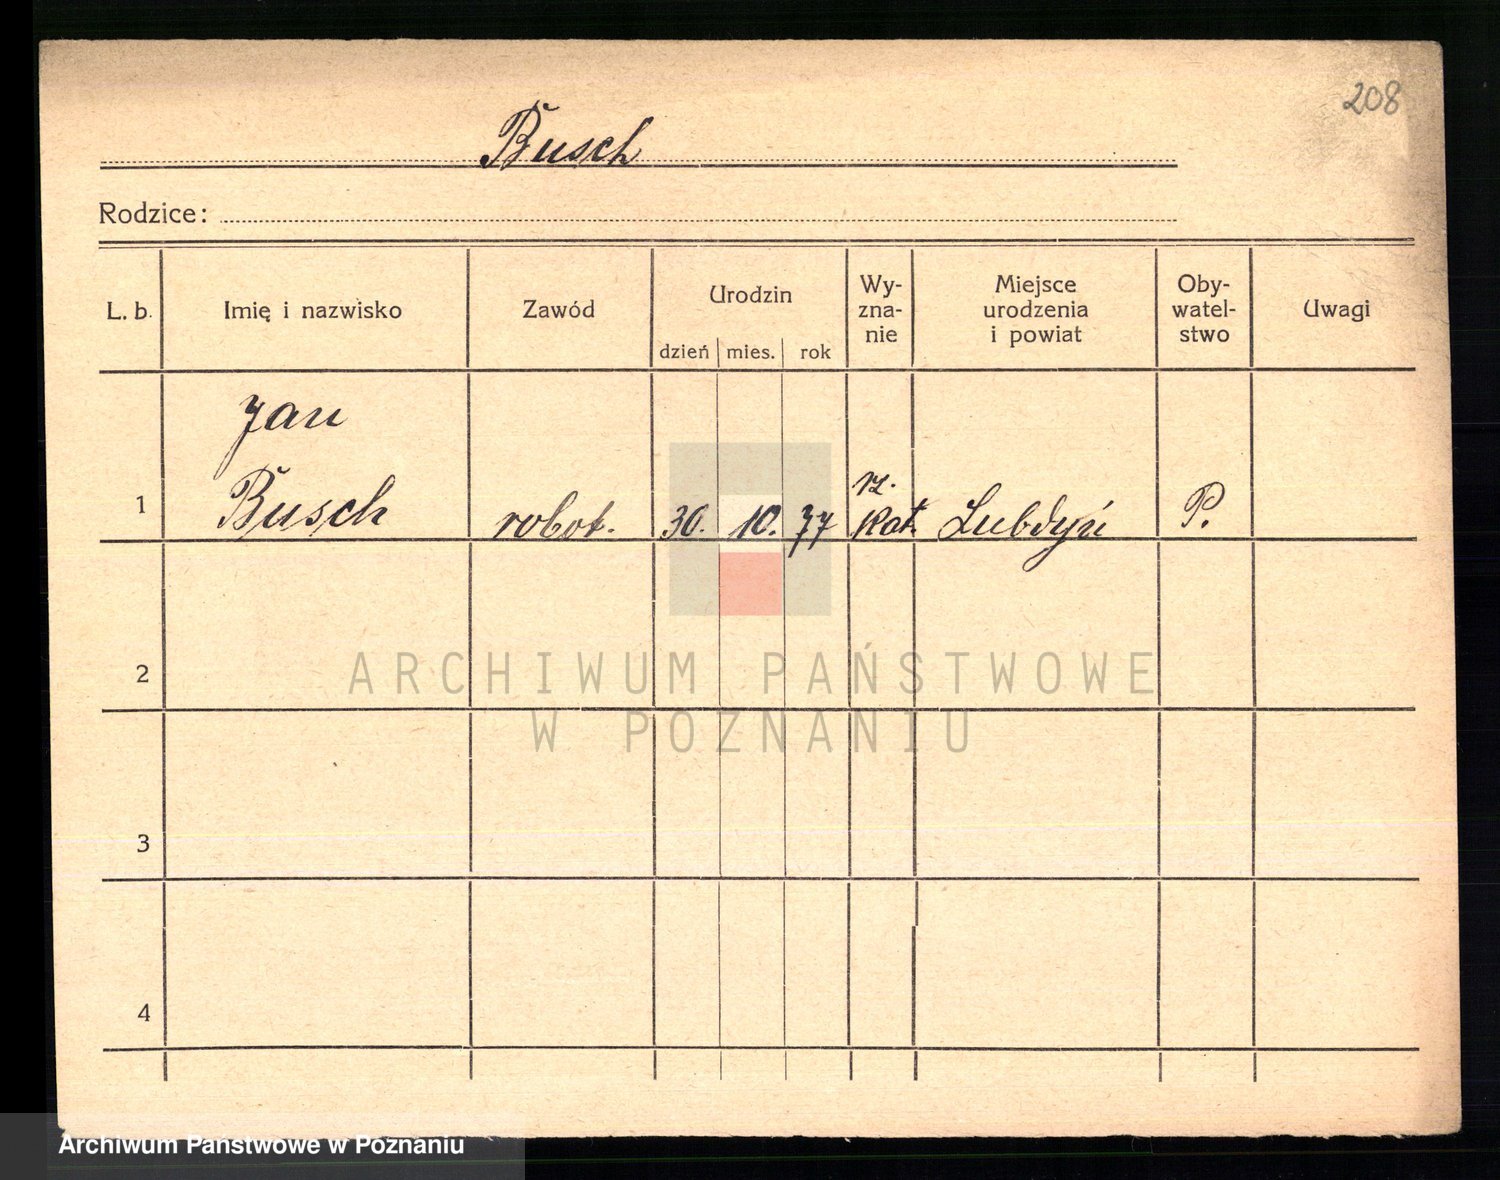 208
Busch
Rodzice:
L. b.
Imię i nazwisko
Zawód
Urodzin
dzień mies. rok
Wy-
zna-
nie
Miejsce
urodzenia
i powiat
Oby-
watel-
stwo
Uwagi
Jan
1 Busch robot. 30. 10. 77 rz. kat. P.
2
3
4
ARCHIWUM PAŃSTWOWE
W POZNANIU
Archiwum Państwowe w Poznaniu